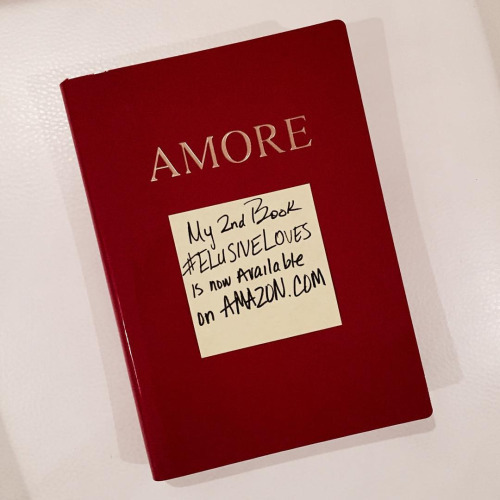 AMORE
My 2nd Book
#ELUSIVELOVES
is now Available
on AMAZON.COM